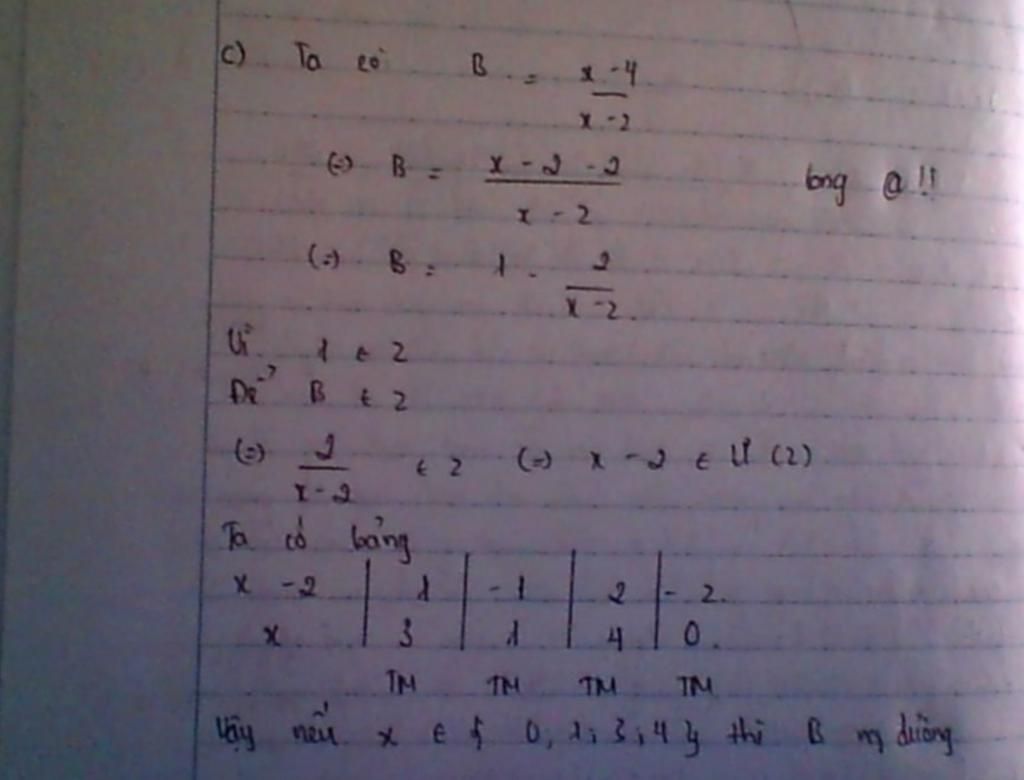 c) Ta có B = x - 4 / x - 2
(=) B = x - 2 - 2 / x - 2
long @!!
(=) B = 1 - 2 / x - 2
Vì 1 ∈ Z
Để B ∈ Z
(=) 2 / x - 2 ∈ Z (=) x - 2 ∈ Ư (2)
Ta có bảng
x - 2 | 1 | - 1 | 2 | - 2
x | 3 | 1 | 4 | 0
TM TM TM TM
Vậy nếu x ∈ { 0, 1; 3; 4 } thì B ng dương